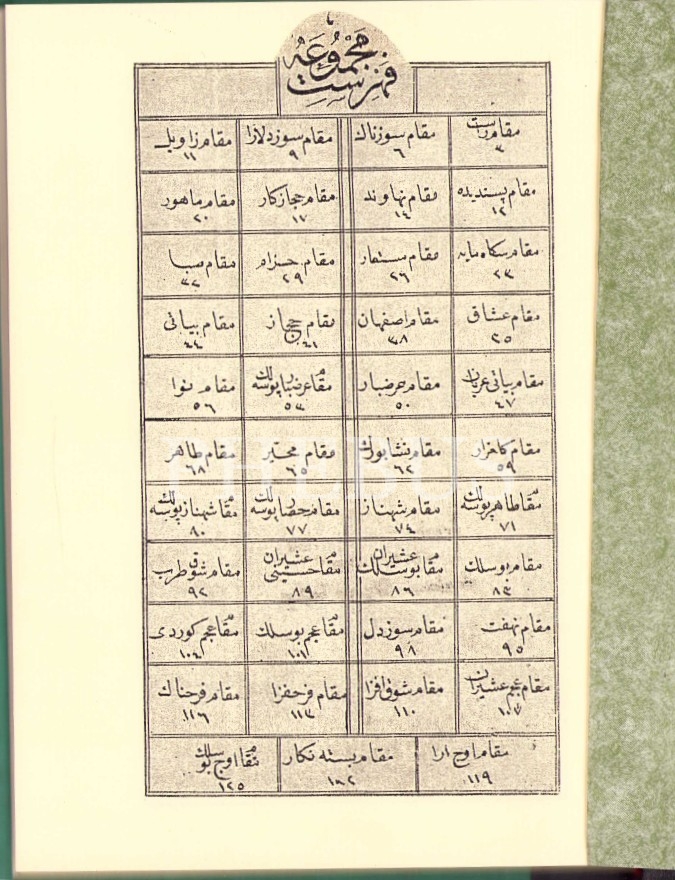 فهرست مجموعه
مقام راست ٣
مقام سوزناك ٦
مقام سوزدلارا ٩
مقام زاويل ١١
مقام پسنديده ١٢
مقام نهاوند ١٤
مقام حجازكار ١٧
مقام ماهور ٢٠
مقام سكاه مايه ٢٣
مقام مستعار ٢٦
مقام حزام ٢٩
مقام صبا ٣٢
مقام عشاق ٣٥
مقام اصفهان ٣٨
مقام حجاز ٤١
مقام بياتى ٤٤
مقام بياتى عربان ٤٧
مقام عرضبار ٥٠
مقام عرضبار بوسه لك ٥٣
مقام نوا ٥٦
مقام كلعزار ٥٩
مقام نشابورك ٦٢
مقام محير ٦٥
مقام طاهر ٦٨
مقام طاهر بوسه لك ٧١
مقام شهناز ٧٤
مقام حصار بوسه لك ٧٧
مقام شهناز بوسه لك ٨٠
مقام بوسلك ٨٣
مقام بوسلك عشيران ٨٦
مقام حسينى عشيران ٨٩
مقام شوق طرب ٩٢
مقام نهفت ٩٥
مقام سوزدل ٩٨
مقام عجم بوسلك ١٠١
مقام عجم كوردى ١٠٤
مقام عجم عشيران ١٠٧
مقام شوق افزا ١١٠
مقام فرحفزا ١١٣
مقام فرحناك ١١٦
مقام اوج ارا ١١٩
مقام بسته نكار
مقام اوج بوسلك ١٢٥
PHEBUS